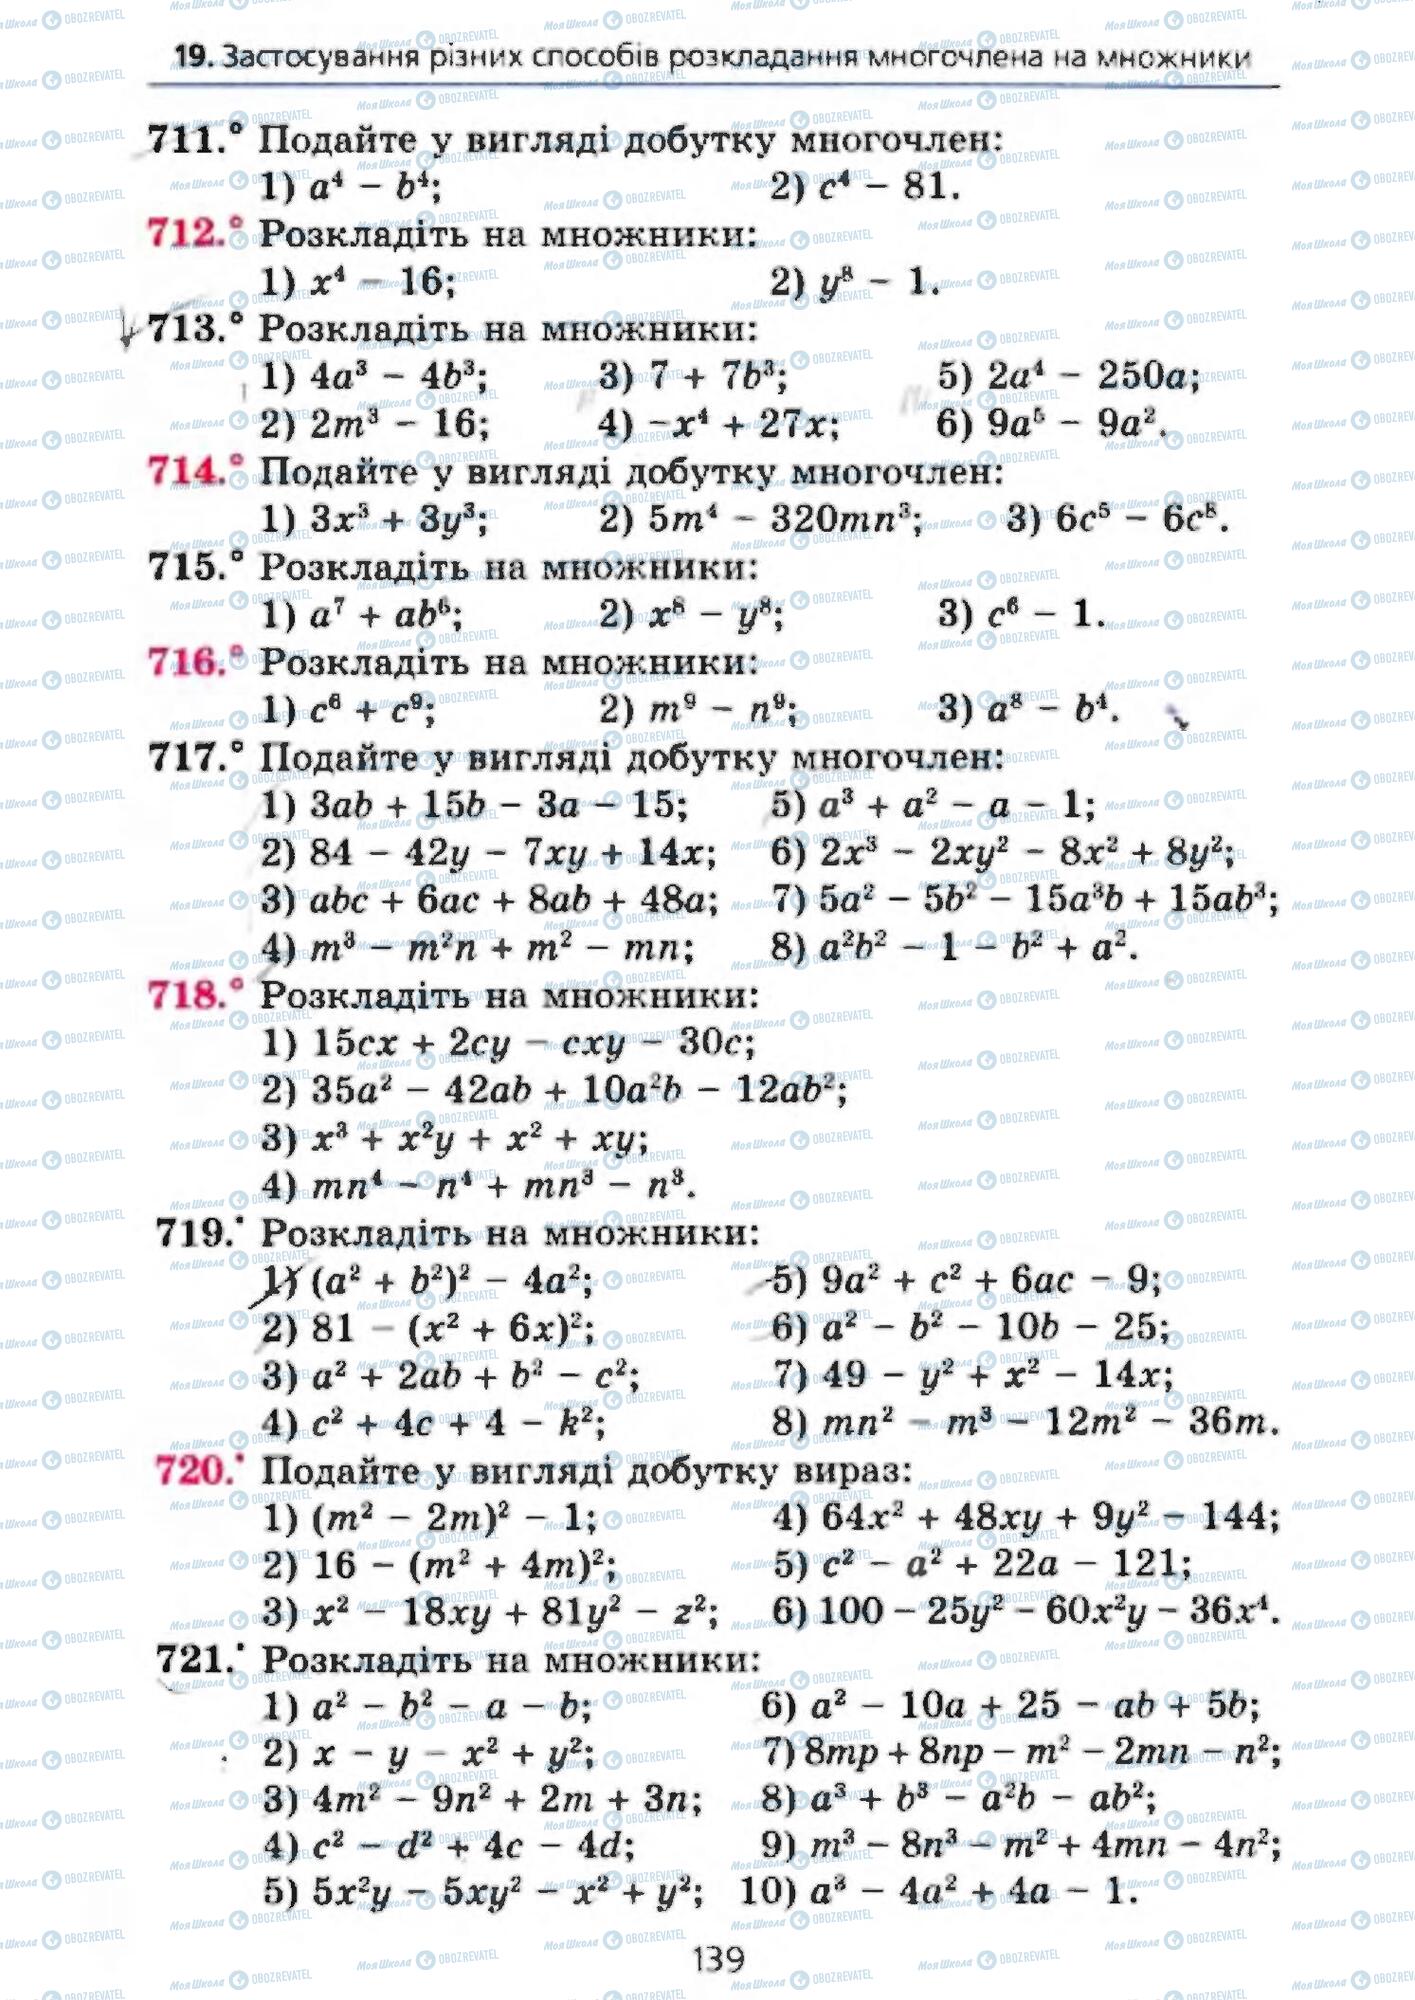 19. Застосування різних способів розкладання многочлена на множники
711.° Подайте у вигляді добутку многочлен:
1) a⁴ − b⁴; 2) c⁴ − 81.
712.° Розкладіть на множники:
1) x⁴ − 16; 2) y⁸ − 1.
713.° Розкладіть на множники:
1) 4a³ − 4b³; 3) 7 + 7b³; 5) 2a⁴ − 250a;
2) 2m³ − 16; 4) −x⁴ + 27x; 6) 9a⁵ − 9a².
714.° Подайте у вигляді добутку многочлен:
1) 3x³ + 3y³; 2) 5m⁴ − 320mn³; 3) 6c⁵ − 6c⁸.
715.° Розкладіть на множники:
1) a⁷ + ab⁶; 2) x⁸ − y⁸; 3) c⁶ − 1.
716.° Розкладіть на множники:
1) c⁶ + c⁹; 2) m⁹ − n⁹; 3) a⁸ − b⁴.
717.° Подайте у вигляді добутку многочлен:
1) 3ab + 15b − 3a − 15; 5) a³ + a² − a − 1;
2) 84 − 42y − 7xy + 14x; 6) 2x³ − 2xy² − 8x² + 8y²;
3) abc + 6ac + 8ab + 48a; 7) 5a² − 5b² − 15a³b + 15ab³;
4) m³ − m²n + m² − mn; 8) a²b² − 1 − b² + a².
718.° Розкладіть на множники:
1) 15cx + 2cy − cxy − 30c;
2) 35a² − 42ab + 10a²b − 12ab²;
3) x³ + x²y + x² + xy;
4) mn⁴ − n⁴ + mn³ − n³.
719.• Розкладіть на множники:
1) (a² + b²)² − 4a²; 5) 9a² + c² + 6ac − 9;
2) 81 − (x² + 6x)²; 6) a² − b² − 10b − 25;
3) a² + 2ab + b² − c²; 7) 49 − y² + x² − 14x;
4) c² + 4c + 4 − k²; 8) mn² − m³ − 12m² − 36m.
720.• Подайте у вигляді добутку вираз:
1) (m² − 2m)² − 1; 4) 64x² + 48xy + 9y² − 144;
2) 16 − (m² + 4m)²; 5) c² − a² + 22a − 121;
3) x² − 18xy + 81y² − z²; 6) 100 − 25y² − 60x²y − 36x⁴.
721.• Розкладіть на множники:
1) a² − b² − a − b; 6) a² − 10a + 25 − ab + 5b;
2) x − y − x² + y²; 7) 8mp + 8np − m² − 2mn − n²;
3) 4m² − 9n² + 2m + 3n; 8) a³ + b³ − a²b − ab²;
4) c² − d² + 4c − 4d; 9) m³ − 8n³ − m² + 4mn − 4n²;
5) 5x²y − 5xy² − x² + y²; 10) a³ − 4a² + 4a − 1.
139